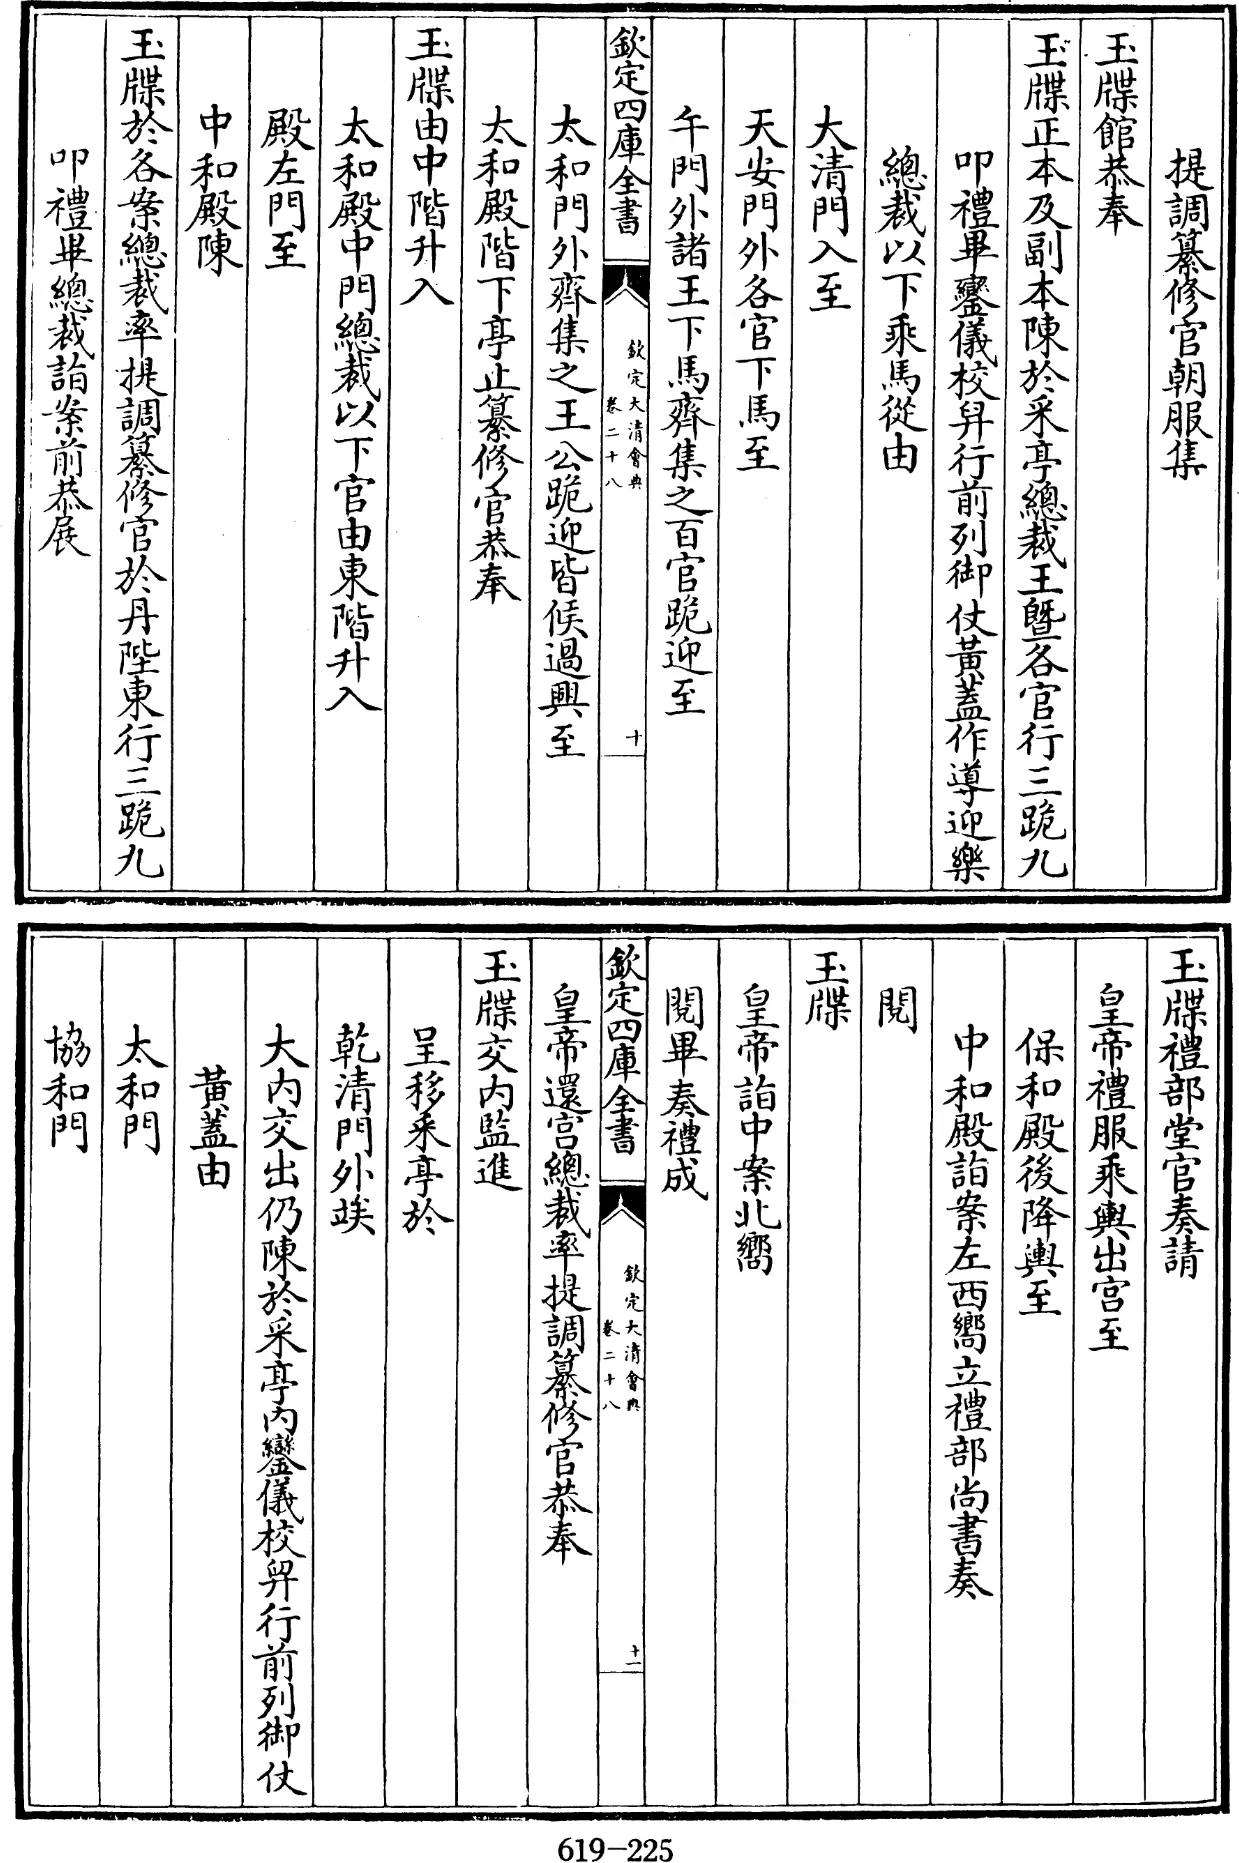 提調纂修官朝服集
玉牒館恭奉
玉牒正本及副本陳於采亭總裁王暨各官行三跪九
叩禮畢鑾儀校舁行前列御仗黃蓋作導迎樂
總裁以下乘馬從由
大清門入至
天安門外各官下馬至
午門外諸王下馬齊集之百官跪迎至
欽定四庫全書
欽定大清會典
卷二十八
十
太和門外齊集之王公跪迎皆候過興至
太和殿階下亭止纂修官恭奉
玉牒由中階升入
太和殿中門總裁以下官由東階升入
殿左門至
中和殿陳
玉牒於各案總裁率提調纂修官於丹陛東行三跪九
叩禮畢總裁詣案前恭展
玉牒禮部堂官奏請
皇帝禮服乘輿出宮至
保和殿後降輿至
中和殿詣案左西嚮立禮部尚書奏
閱
玉牒
皇帝詣中案北嚮
閱畢奏禮成
欽定四庫全書
欽定大清會典
卷二十八
十一
皇帝還宮總裁率提調纂修官恭奉
玉牒交內監進
呈移采亭於
乾清門外竢
大內交出仍陳於采亭內鑾儀校舁行前列御仗
黃蓋由
太和門
協和門
619-225